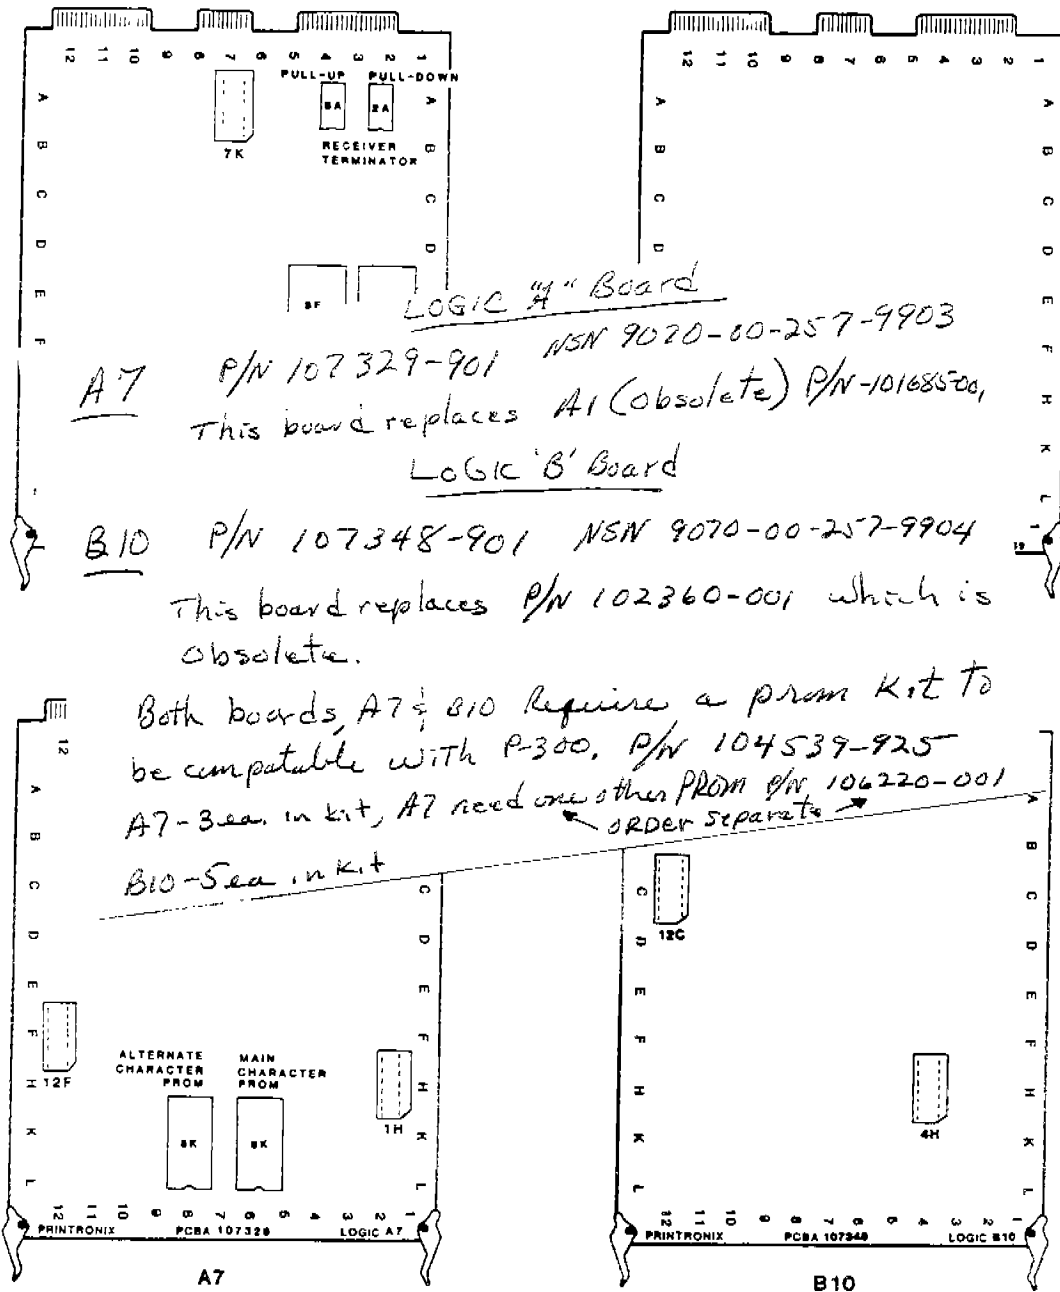 12 11 10 9 8 7 6 5 4 3 2 1
12 11 10 9 8 7 6 5 4 3 2 1
PULL-UP PULL-DOWN
2A
7K
RECEIVER
TERMINATOR
A B C D E F
A B C D
A B C D
A B C D E F H K L
LOGIC "A" Board
A7 P/N 107329-901 NSN 9070-00-257-9903
This board replaces A1 (Obsolete) P/N-101685-001
LOGIC 'B' Board
B10 P/N 107348-901 NSN 9070-00-257-9904
This board replaces P/N 102360-001 which is
Obsolete.
Both boards, A7 & B10 Require a prom Kit To
be compatable with P-300. P/N 104539-925
A7-3ea. in kit, A7 need one other PROM P/N 106220-001
ORDER Separate
B10-5ea in Kit
12
A B C D E F H K L
C D E F H K L
C D E F H K L
A B C D E F H K L
12C
12F
ALTERNATE
CHARACTER
PROM
MAIN
CHARACTER
PROM
1H
4H
12 11 10 9 8 7 6 5 4 3 2 1
PRINTRONIX PCBA 107328 LOGIC A7
A7
12 11 10 9 8 7 6 5 4 3 2 1
PRINTRONIX PCBA 107348 LOGIC B10
B10